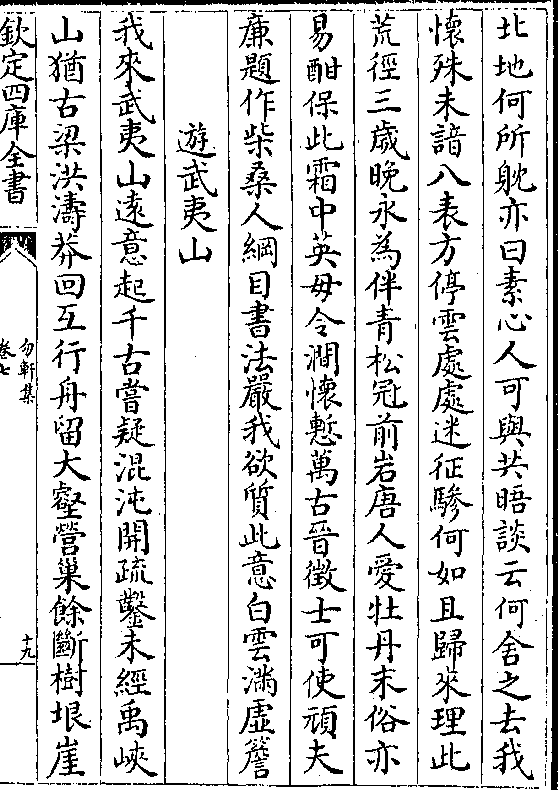 北地何所躭亦曰素心人可與共晤談云何舍之去我
懐殊未諳八表方停雲處處迷征驂何如且歸來理此
荒徑三歳晚永為伴青松冠前岩唐人愛牡丹末俗亦
易酣保此霜中英毋令澗懐慙萬古晉徴士可使頑夫
亷題作柴桑人綱目書法嚴我欲質此意白雲滿虚簷
遊武夷山
我來武夷山逺意起千古嘗疑混沌開疏鑿未經禹峽
山猶古梁洪濤莽回互行舟留大壑營巢餘斷樹垠崖
欽定四庫全書
勿軒集
卷七
十九